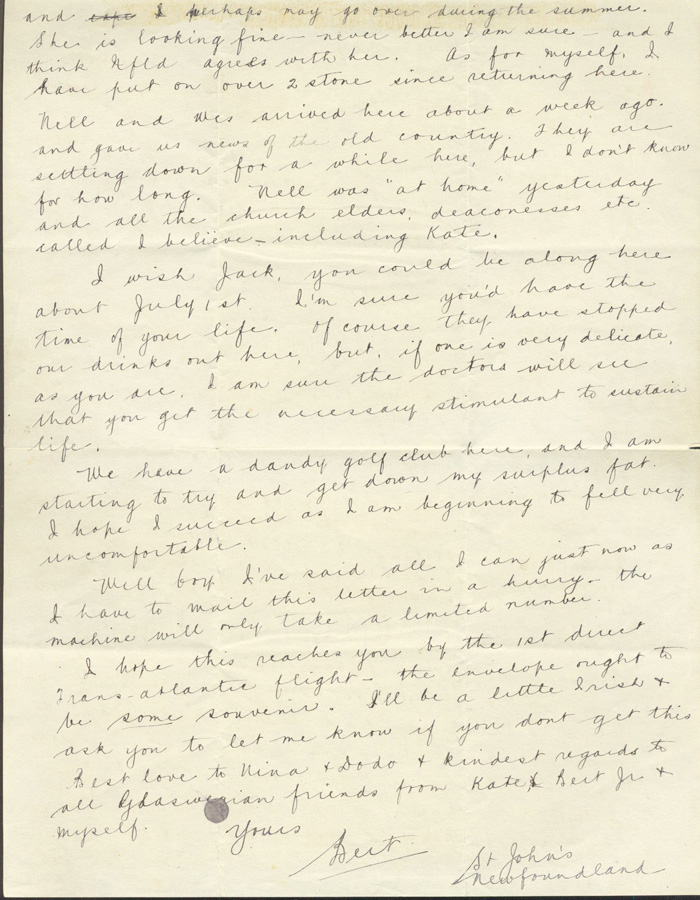 and I perhaps may go over during the summer.
She is looking fine – never better I am sure – and I
think Nfld agrees with her. As for myself, I
have put on over 2 stone since returning here.
Nell and Wes arrived here about a week ago.
and gave us news of the old country. They are
settling down for a while here, but I don't know
for how long. Nell was "at home" yesterday
and all the church elders, deaconesses etc.
called I believe – including Kate.
I wish Jack, you could be along here
about July 1st. I'm sure you'd have the
time of your life. Of course they have stopped
our drinks out here, but, if one is very delicate,
as you are, I am sure the doctors will see
that you get the necessary stimulant to sustain
life.
We have a dandy golf club here, and I am
starting to try and get down my surplus fat.
I hope I succeed as I am beginning to fell very
uncomfortable.
Well boy I've said all I can just now as
I have to mail this letter in a hurry – the
machine will only take a limited number.
I hope this reaches you by the 1st direct
Trans-atlantic flight – the envelope ought to
be some souvenir. I'll be a little Irish &
ask you to let me know if you dont get this
Best love to Nina & Dodo & kindest regards to
all Glaswegian friends from Kate, Bert Jr &
myself.
Yours
Bert
St John's
Newfoundland